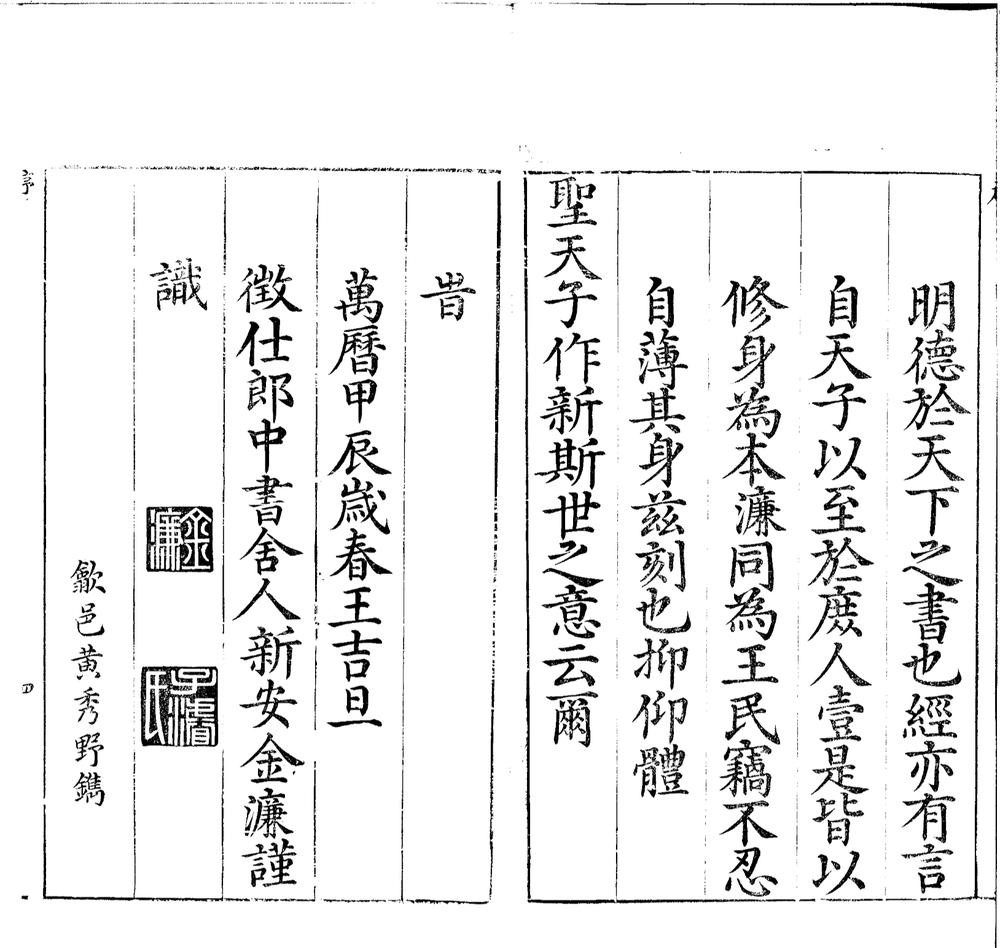 明德於天下之書也經亦有言
自天子以至於庶人壹是皆以
修身為本濂同為王民竊不忍
自薄其身茲刻也抑仰體
聖天子作新斯世之意云爾
旹
萬曆甲辰歲春王吉旦
徵仕郎中書舍人新安金濂謹
識
金濂
子濬氏
歙邑黃秀野鐫
序
四